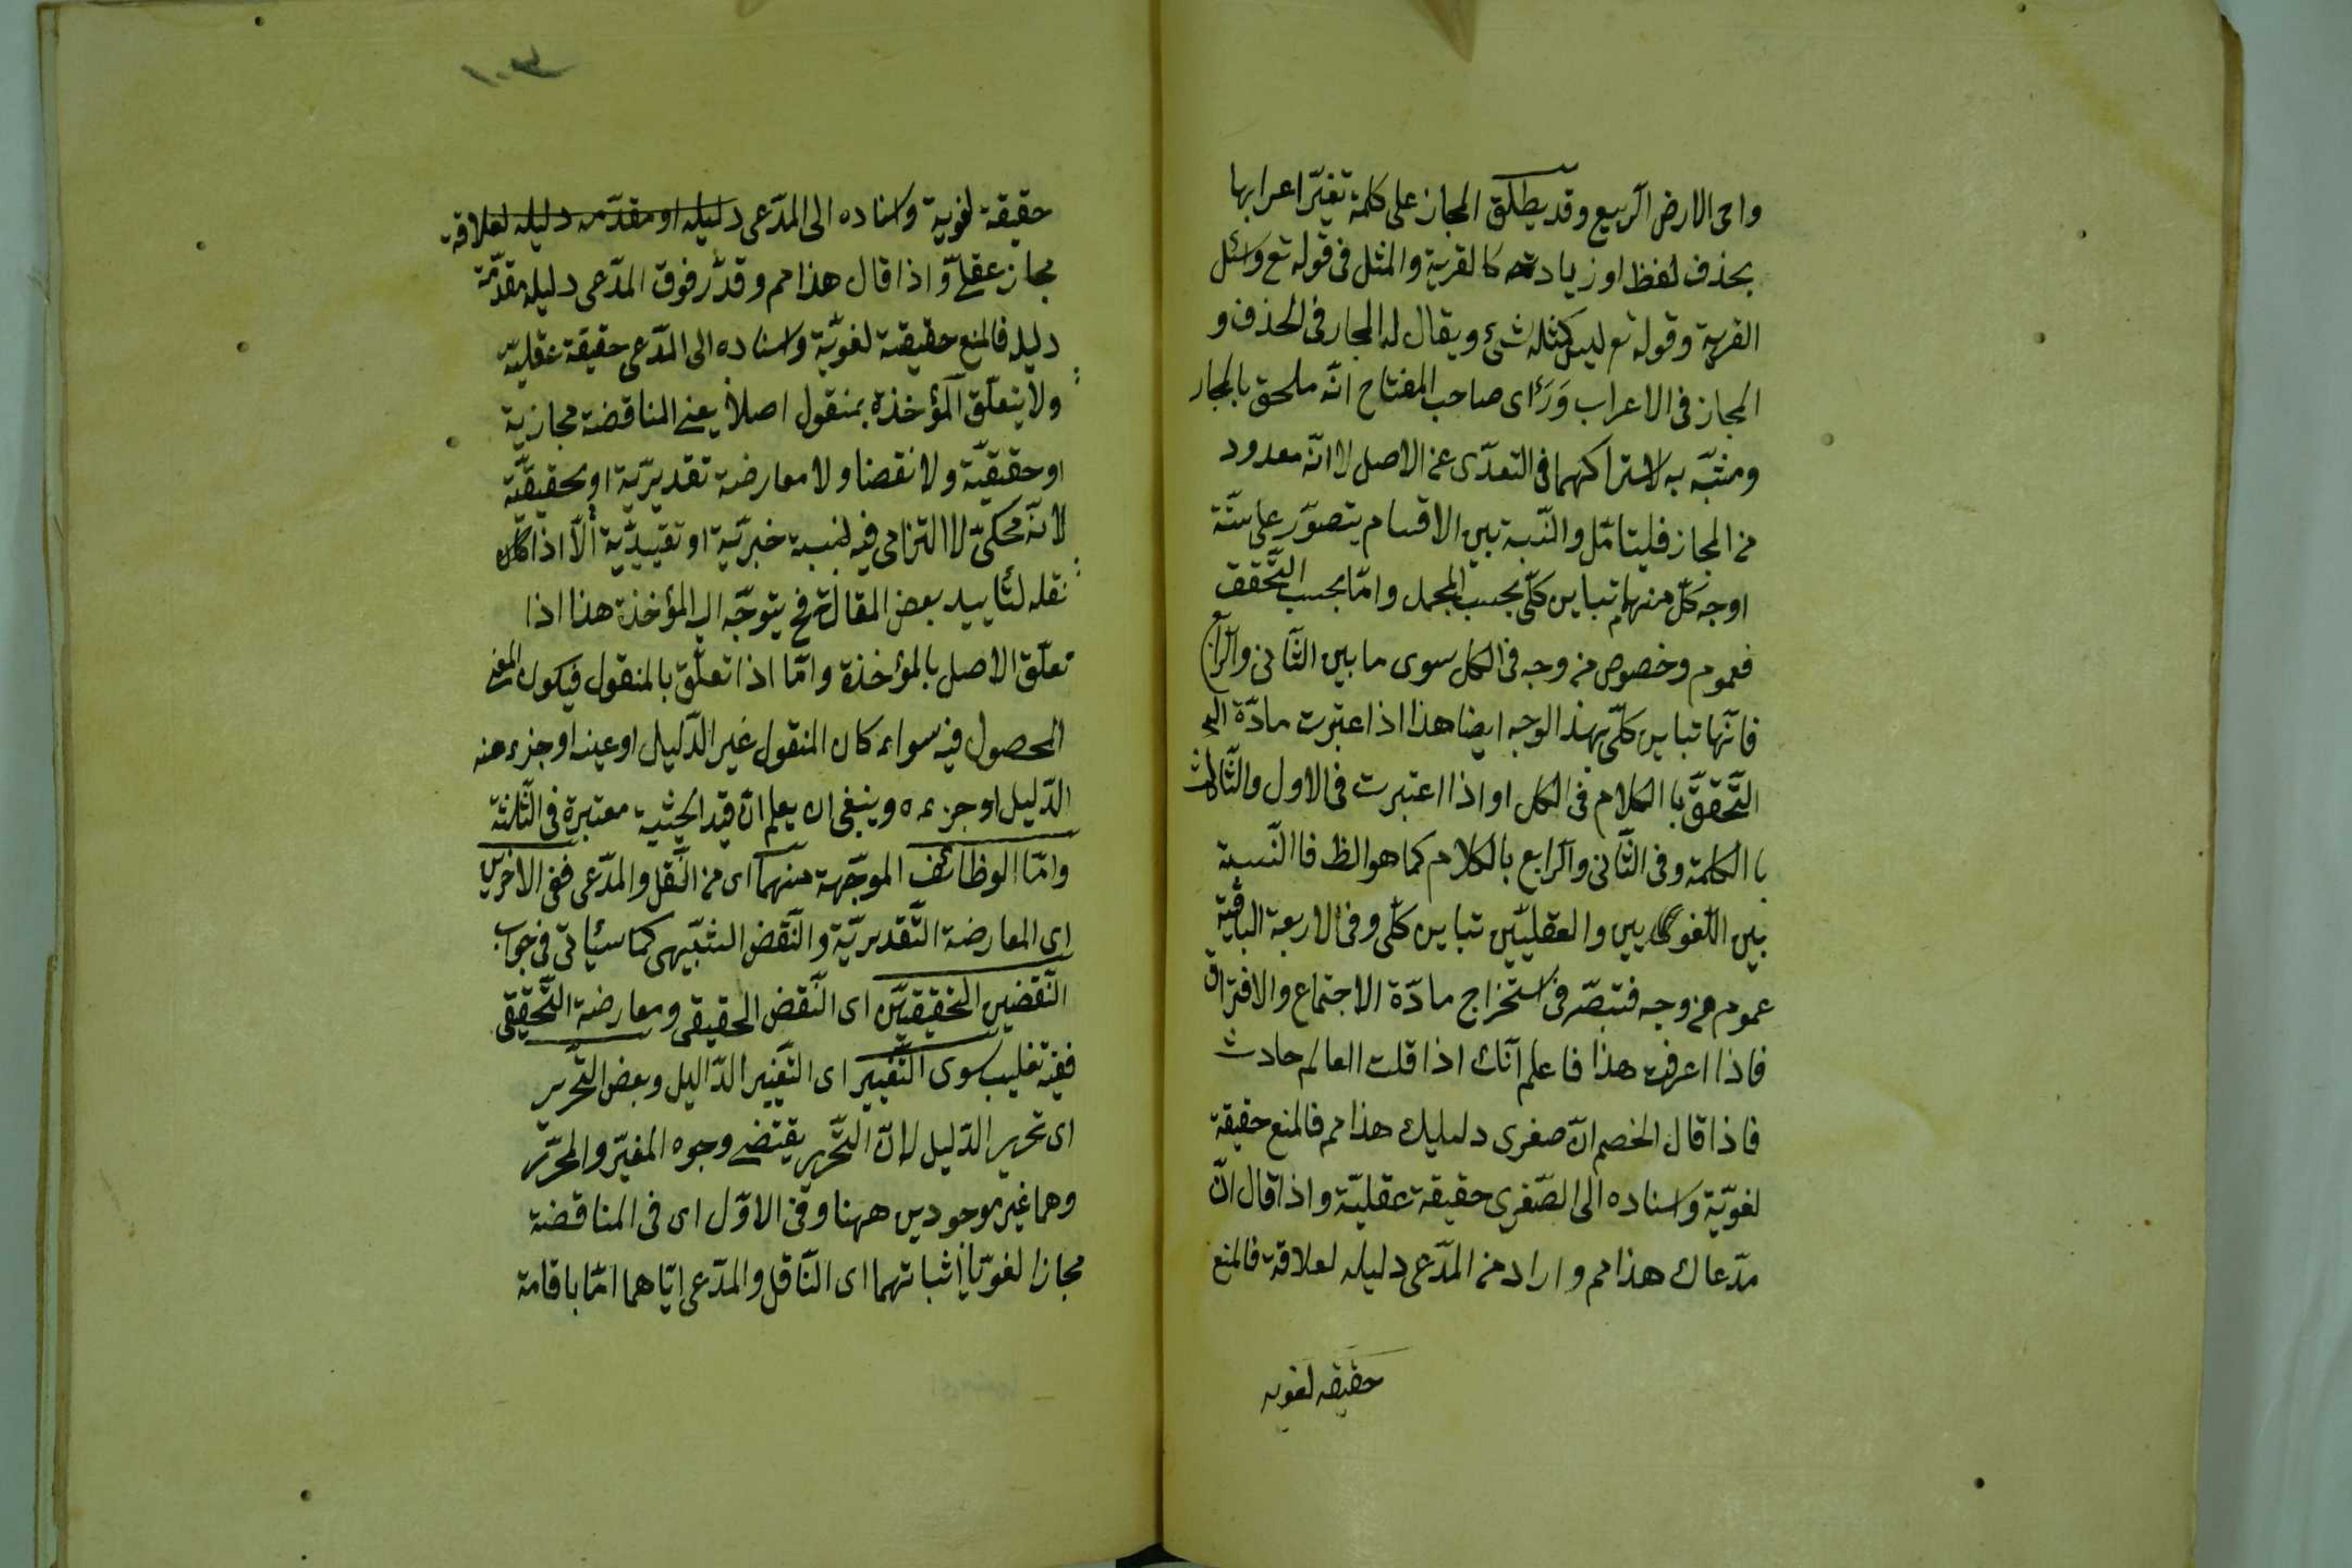 واحى الارض الربيع وقد يطلق المجاز على كلمة تغيّر اعرابها
بحذف لفظ او زيادته كالقرية والمثل فى قوله تع واسئل
القرية وقوله تع ليس كمثله شئ ويقال له المجاز فى الحذف و
المجاز فى الاعراب وَرَأى صاحب المفتاح انّه ملحق بالمجاز
ومشبّه به لاشتراكهما فى التعدّى عن الاصل لا انّه معدود
من المجاز فليتامّل والنّسبة بين الاقسام يتصوّر على ستّة
اوجه كلّ منها تباين كلّى بحسب المجمل وامّا بحسب التّحقق
فعموم وخصوص من وجه فى الكل سوى ما بين الثّانى والرّابع
فانّها تباين كلّى بهذا الوجه ايضا هذا اذا عتبرت مادّة
التّحقّق با الكلام فى الكل او اذا اعتبرت فى الاول والثّالث
با الكلمة وفى الثّانى والرابع بالكلام كما هو الظ فا النّسبة
بين اللّغويين والعقليّين تباين كلّى وفى الاربعة الباقية
عموم من وجه فتبصّر فى استخراج مادّة الاجتماع والافتراق
فاذا اعرفت هذا فاعلم انّك اذا قلت العالم حادث
فاذا قال الخصم انّ صغرى دليليك هذا مم فالمنع حقيقة
لغويّة واسناده الى الصّغرى حقيقة عقليّة واذا قال انّ
مدّعاك هذا مم واراد من المدّعى دليله لعلاقة فالمنع
حقيقه لغويه
١٠٣
حقيقة لغوية واسناده الى المدّعى دليله او مقدّمه دليله لعلاقة
مجاز عقلىّ واذا قال هذا مم وقدّر فوق المدّعى دليله مقدّمة
دليله فالمنع حقيقة لغويّة واسناده الى المدّعى حقيقة عقليّة
ولا يتعلّق المؤخذة بمنقول اصلاً يعنى المناقضة مجازية
او حقيقيّة ولا نقضا ولا معارضة تقديريّة او تحقيقيّة
لانّه محكىّ لا التزامى فيه لنسبة خبريّة او تقييديّة الّا اذا كان
نقله لتأييد بعض المقالة فح يتوجّه اليه المؤخذة هذا اذا
تعلّق الاصل بالمؤخذة وامّا اذا تعلّق بالمنقول فيكون المعنى
المحصول فيه سواء كان المنقول غير الدّليل او عينه او جزء منه
الدّليل او جزءه وينبغى ان يعلم انّ قيد الحيثية معتبرة فى الثّلثة
وامّا الوظائف الموجّهة منهما اى من النّقل والمدّعى ففى الاخرين
اى المعارضة التّقديريّة والنّقض الشّبيهى كما سيأتى فى جواب
النّقضين التحقيقيّين اى النّقض الحقيقى ومعارضة التّحقيقى
ففيه تغليب سوى التّغيير اى التّغيير الدّاليل وبعض التّحرير
اى تحرير الدّليل لانّ التّحرير يقتضى وجوه المغيّر والمحرّر
وهما غير موجودين ههنا وفى الاوّل اى فى المناقضة
مجازا لغويّا اثباتهما اى النّاقل والمدّعى ايّاهما امّا باقامة